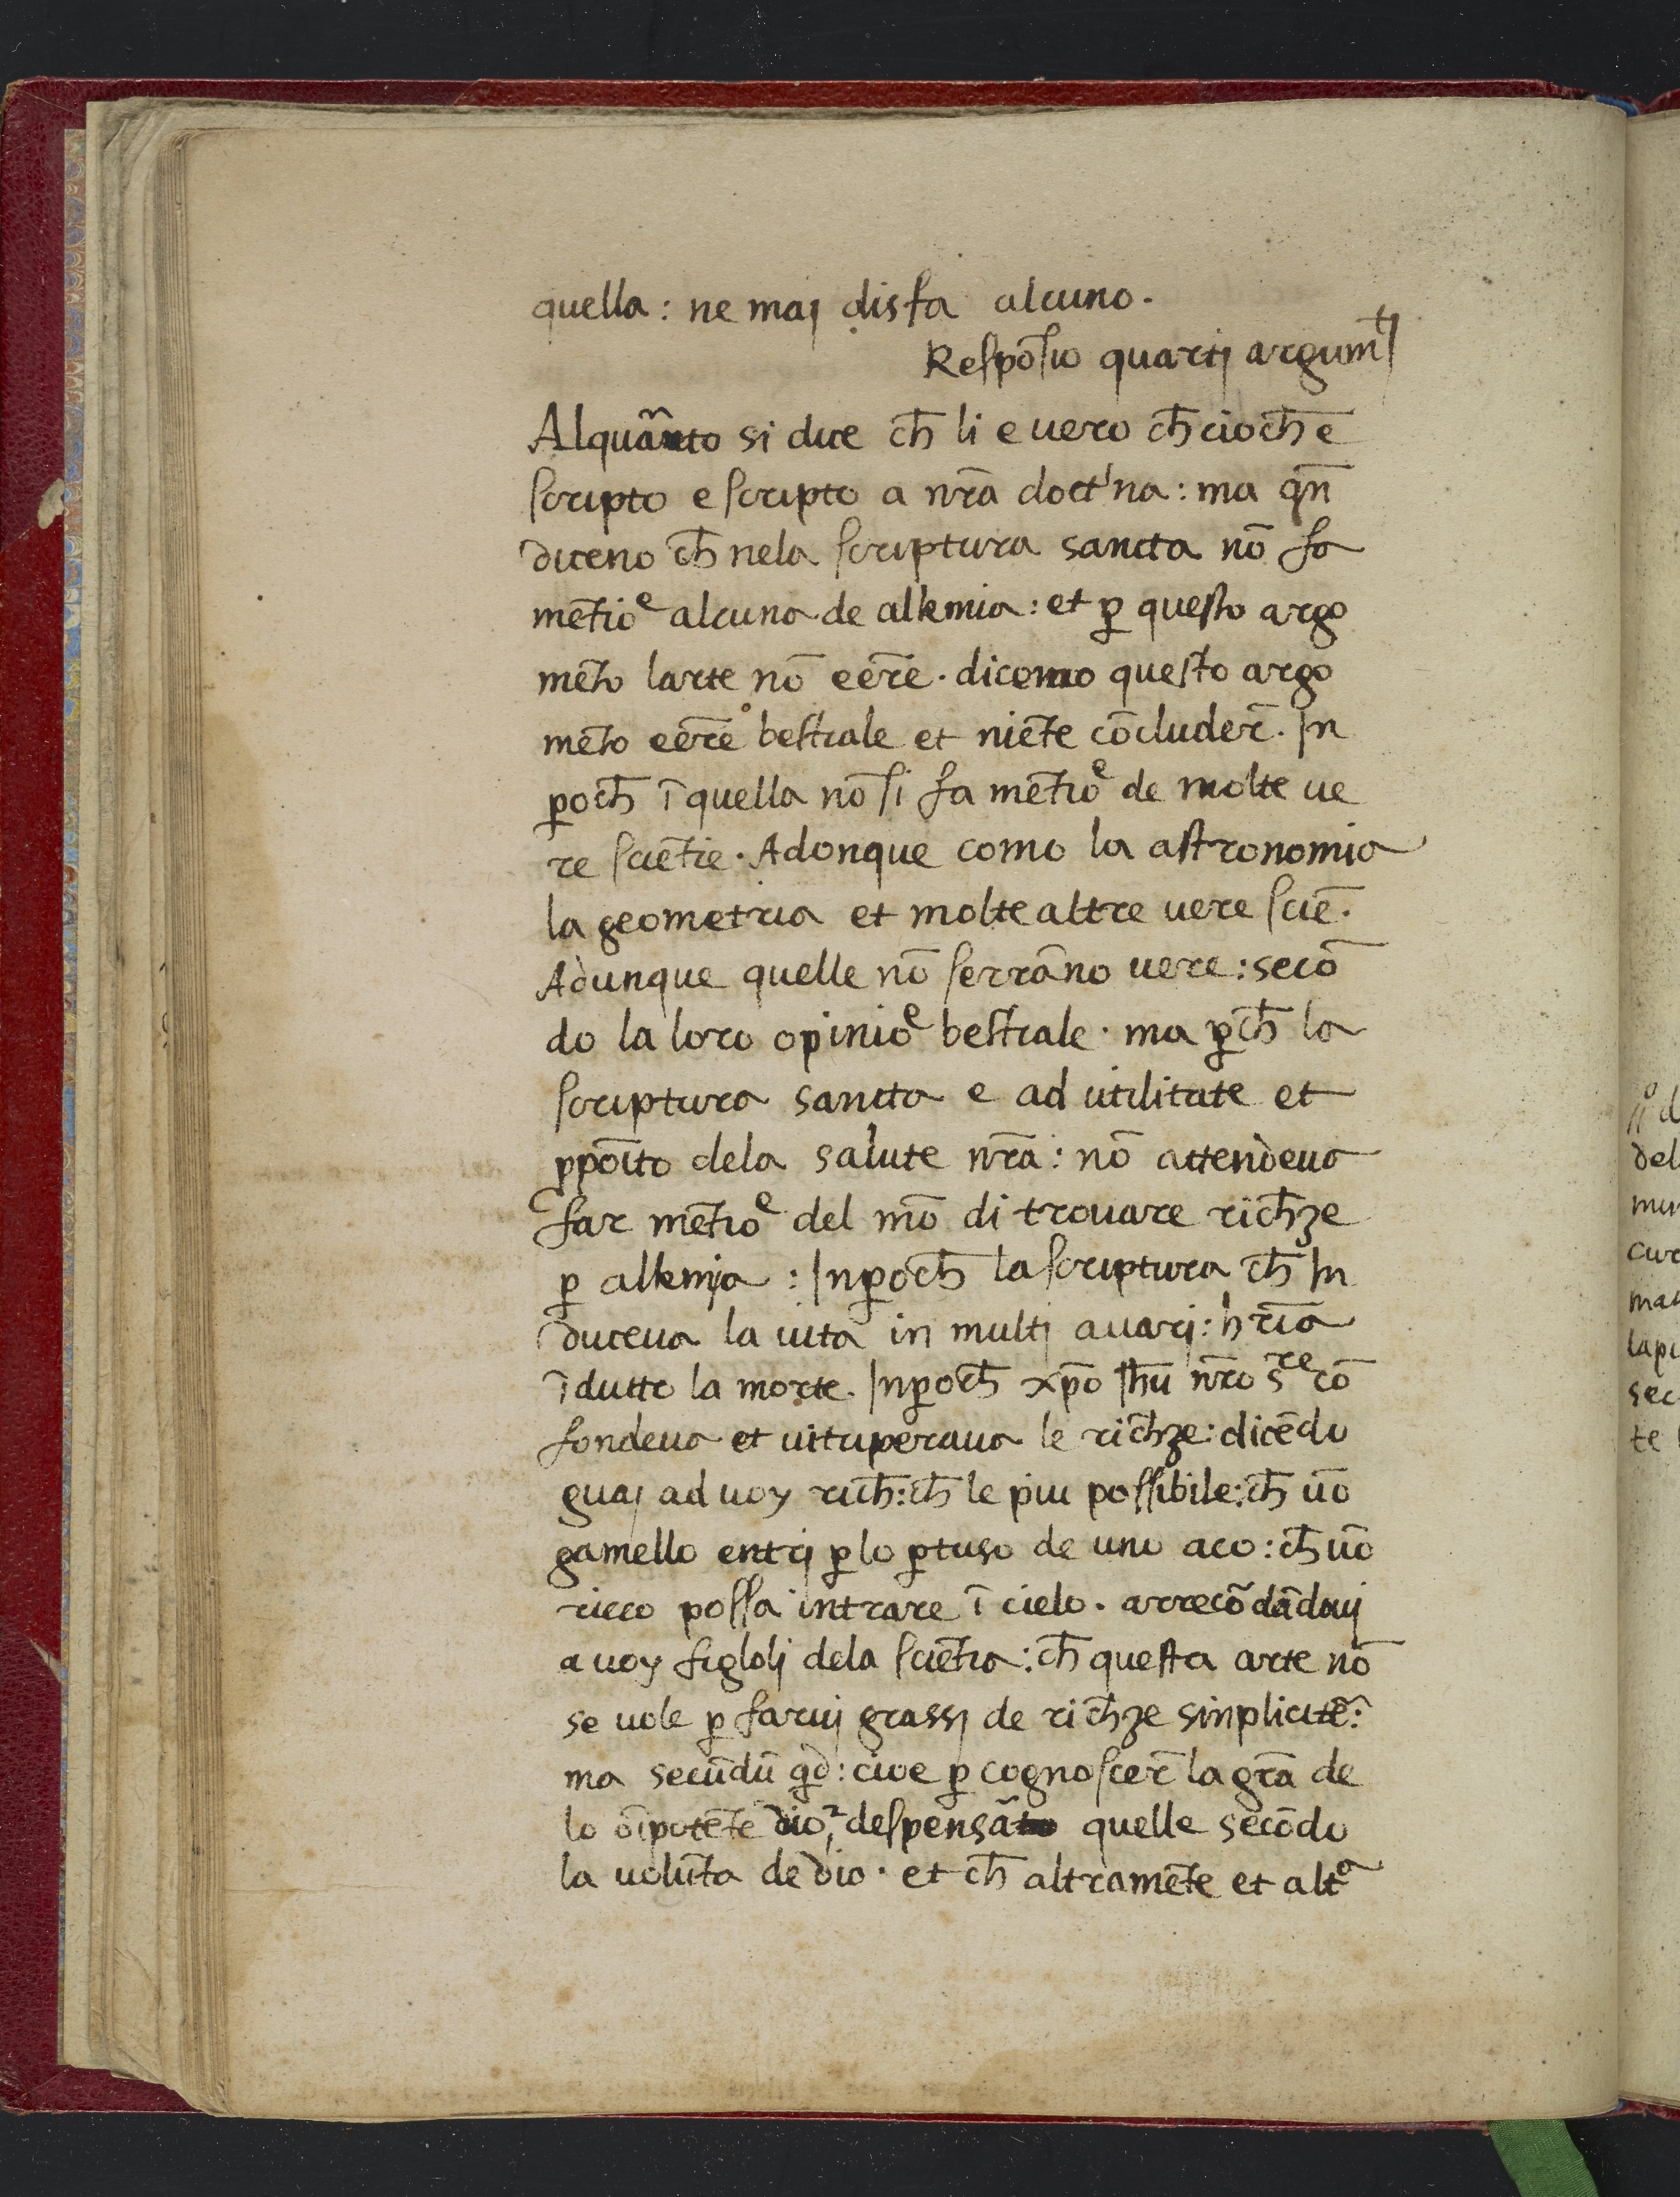 quella: ne maj disfa alcuno.
Respōsio quartj argumͭj
Alquãnto si dice cħ li e uero cħ ciocħ e
scripto e scripto a nr̄a doctͥna: ma qn̄
diceno cħ nela scriptura sancta nō fa
mētioͤ alcuna de alkemia: et ꝑ questo argo
mēto larte nō eēre. dicemo questo argo
mēto eēre bestiale et niēte cōcluder̄. In
ꝑocħ ī quella nō si fa mētioͤ de molte ue
re sciētie. Adonque como la astronomia
la geometria et molte altre uere sciē.
Adunque quelle nō serrāno uere: secō
do la loro opinioͤ bestiale. ma ꝑcħ la
scriptura sancta e ad utilitate et
ꝓpoīto dela salute nr̄a: nō attendeua
far mētioͤ del mō di trouare ricħze
ꝑ alkemja: Inꝑocħ la scriptura cħ In
duceua la uita in multj auarj: hr̄ia
īdutto la morte. Inꝑocħ xp̄o Iħu nr̄o sͬͤ cō
fondeua et uituperaua le ricħze: dicēdo
guaj ad uoy ricħ: cħ le piu possibile: cħ ūo
gamello entrj ꝑ lo ꝑtuso de uno aco: cħ ūo
ricco possa intrare ī cielo. arrecōdādouj
a uoy figlolj dela sciētia: cħ questa arte nō
se uole ꝑ faruj grassj de ricħze sinplicitē:
ma secūdū qd̄: cioe ꝑ cognoscer̄ la gr̄a de
lo oīpotēte dio, despensā quelle secōdo
la uolūta de dio. et cħ altramēte et altͣ
ſi d
del
cur
lapi
sec
te